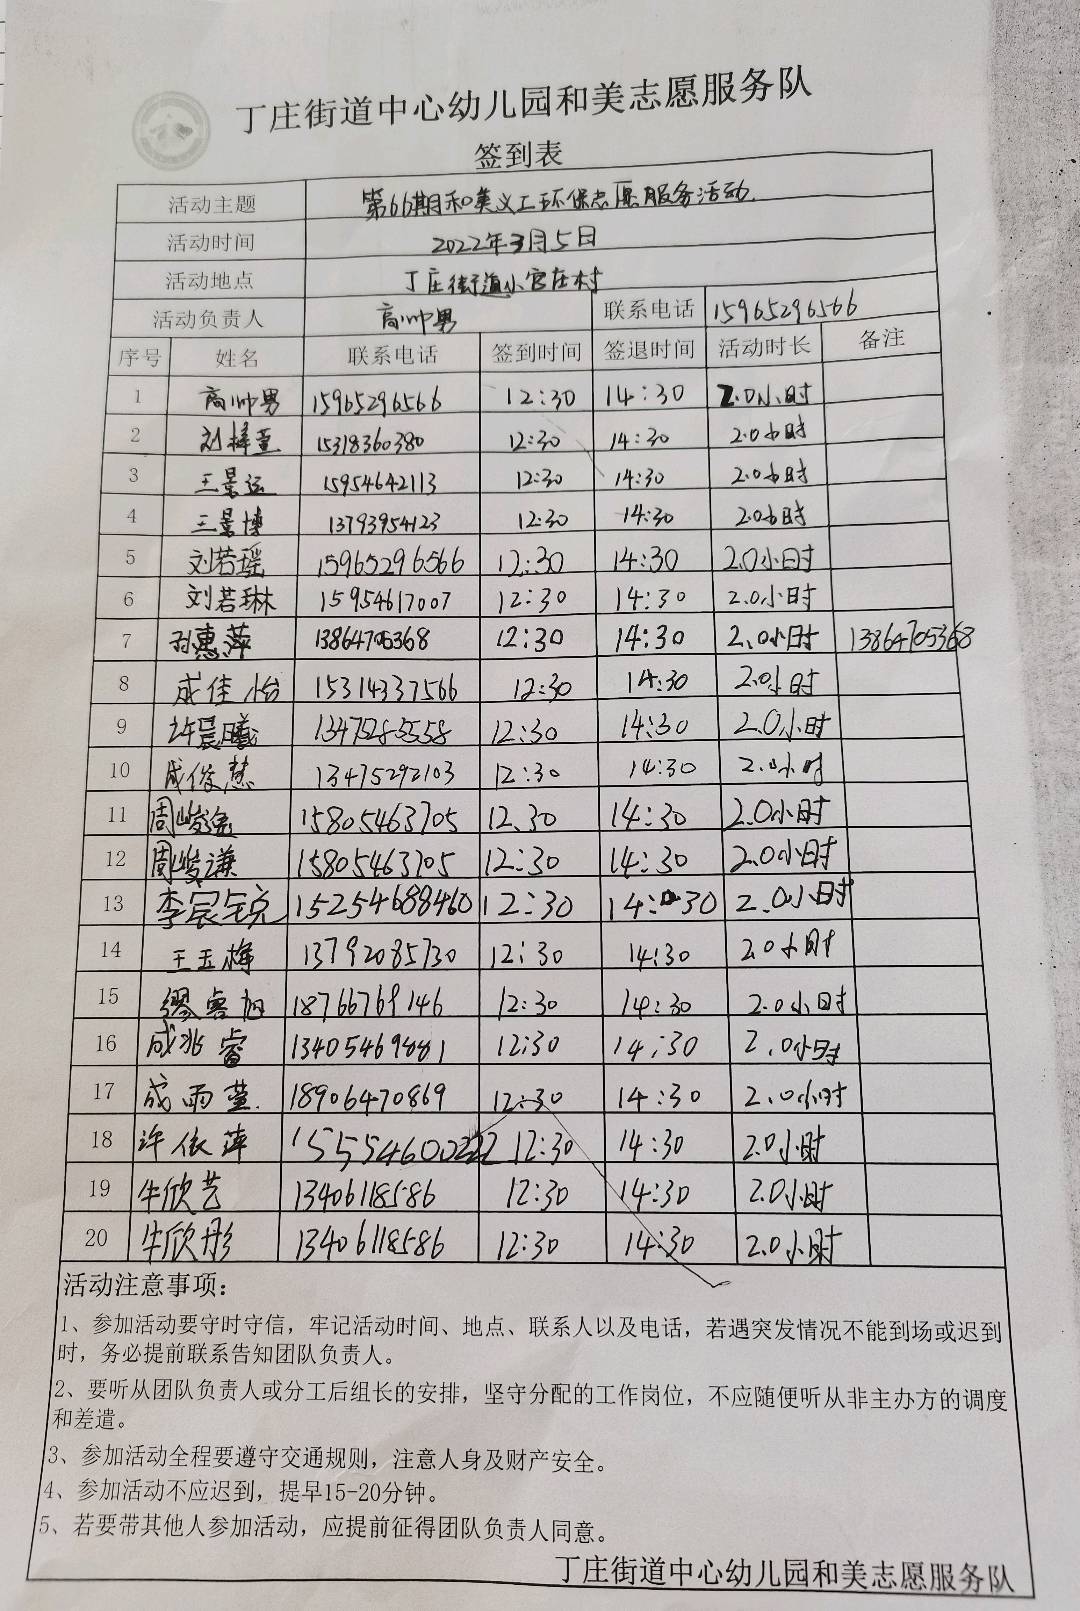 丁庄街道中心幼儿园和美志愿服务队
签到表
活动主题 第66期和美义工环保志愿服务活动
活动时间 2022年3月5日
活动地点 丁庄街道小官庄村
活动负责人 高帅男 联系电话 15965296566
序号 姓名 联系电话 签到时间 签退时间 活动时长 备注
1 高帅男 15965296566 12:30 14:30 2.0小时
2 刘梓萱 15318360380 12:30 14:30 2.0小时
3 王景运 15954642113 12:30 14:30 2.0小时
4 王景博 13793954123 12:30 14:30 2.0小时
5 刘若瑶 15965296566 12:30 14:30 2.0小时
6 刘若琳 15954617007 12:30 14:30 2.0小时
7 孙惠萍 13864705368 12:30 14:30 2.0小时 13864705368
8 成佳怡 15314337566 12:30 14:30 2.0小时
9 许晨曦 12:30 14:30 2.0小时
10 成俊慧 13475292103 12:30 14:30 2.0小时
11 周峻逸 15805463705 12:30 14:30 2.0小时
12 周峻谦 15805463705 12:30 14:30 2.0小时
13 李宸锐 15254688460 12:30 14:30 2.0小时
14 王玉梅 13792085730 12:30 14:30 2.0小时
15 缪睿旭 18766769146 12:30 14:30 2.0小时
16 成兆睿 13405469881 12:30 14:30 2.0小时
17 成雨萱 18906470869 12:30 14:30 2.0小时
18 许依萍 15554600222 12:30 14:30 2.0小时
19 牛欣艺 13406118586 12:30 14:30 2.0小时
20 牛欣彤 13406118586 12:30 14:30 2.0小时
活动注意事项：
1、参加活动要守时守信，牢记活动时间、地点、联系人以及电话，若遇突发情况不能到场或迟到
时，务必提前联系告知团队负责人。
2、要听从团队负责人或分工后组长的安排，坚守分配的工作岗位，不应随便听从非主办方的调度
和差遣。
3、参加活动全程要遵守交通规则，注意人身及财产安全。
4、参加活动不应迟到，提早15-20分钟。
5、若要带其他人参加活动，应提前征得团队负责人同意。
丁庄街道中心幼儿园和美志愿服务队